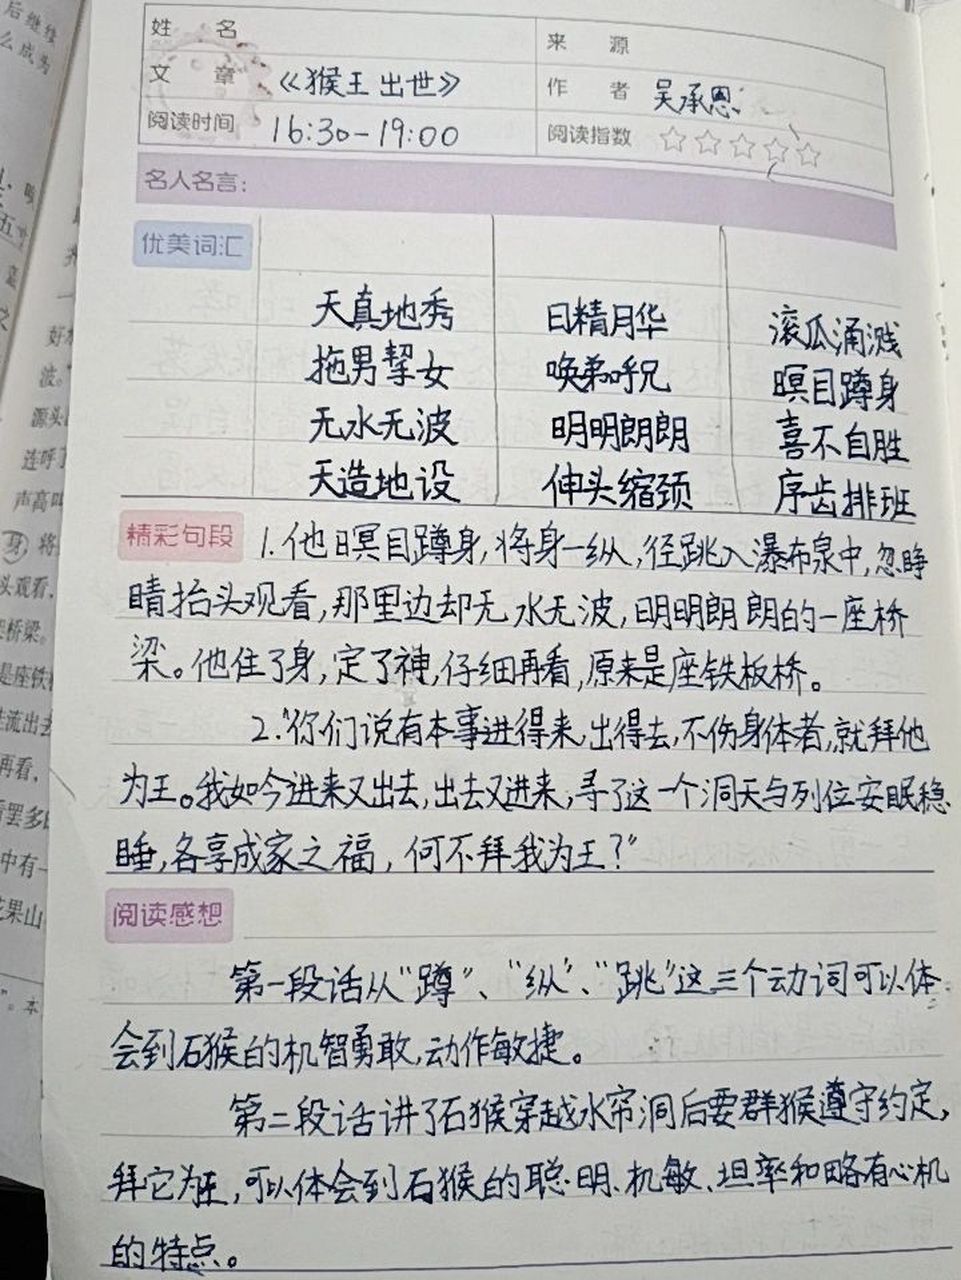 后继续
么成为
姓 名
来 源
文 章 《猴王出世》
作 者 吴承恩
阅读时间 16:30-19:00
阅读指数 ☆☆☆☆☆
名人名言：
优美词汇
天真地秀 日精月华 滚瓜涌溅
拖男挈女 唤弟呼兄 暝目蹲身
无水无波 明明朗朗 喜不自胜
天造地设 伸头缩颈 序齿排班
精彩句段 1.他暝目蹲身，将身一纵，径跳入瀑布泉中，忽睁
睛抬头观看，那里边却无水无波，明明朗朗的一座桥
梁。他住了身，定了神，仔细再看，原来是座铁板桥。
2.“你们说有本事进得来，出得去，不伤身体者，就拜他
为王。我如今进来又出去，出去又进来，寻了这一个洞天与列位安眠稳
睡，各享成家之福，何不拜我为王？”
阅读感想
第一段话从“蹲”、“纵”、“跳”这三个动词可以体
会到石猴的机智勇敢，动作敏捷。
第二段话讲了石猴穿越水帘洞后要群猴遵守约定，
拜它为王，可以体会到石猴的聪明、机敏、坦率和略有心机
的特点。
好水
波。
源头
连呼了
声高叫
身，将
头观看，
桥梁。
是座铁
流出去
再看，
看罢多时
中有一
花果山
”。本